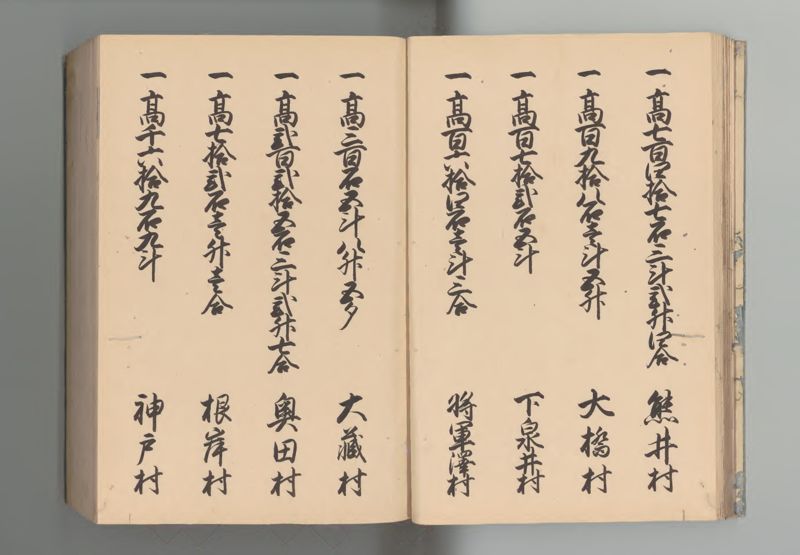 一高七百四拾七石三斗弐升四合 熊井村
一高百九拾八石壱斗五升 大橋村
一高百七拾弐石五斗 下泉井村
一高百六拾四石壱斗三合 将軍澤村
一高三百石五斗八升五夕 大蔵村
一高弐百弐拾五石三斗弐升七合 奥田村
一高七拾弐石壱升壱合 根岸村
一高千六拾九石九斗 神戸村